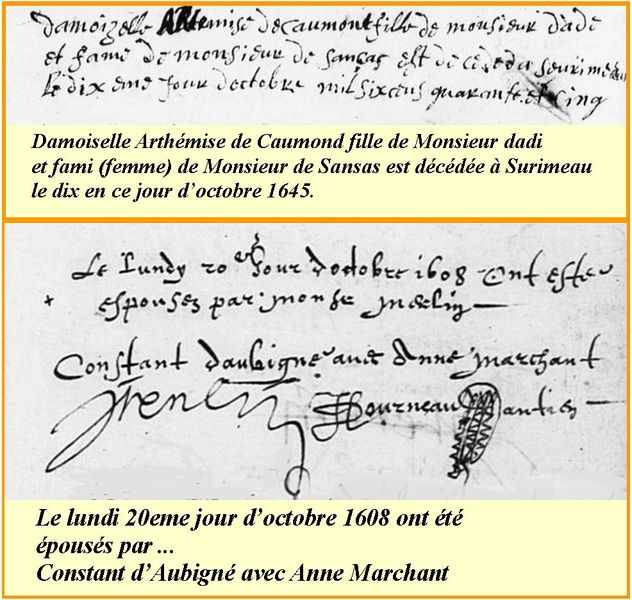 damoizelle Artemise de Caumont fille de monsieur dade
et fame de monsieur de sansas est decedea seurimeau
le dix eme jour doctobre mil sixcens quarante et cinq
Damoiselle Arthémise de Caumond fille de Monsieur dadi
et fami (femme) de Monsieur de Sansas est décédée à Surimeau
le dix en ce jour d’octobre 1645.
Le Lundy 20e Jour doctobre 1608 Ont este
+ espousez par monsr merlin
Constant daubigne avec Anne marchant
Le lundi 20eme jour d’octobre 1608 ont été
épousés par ...
Constant d’Aubigné avec Anne Marchant